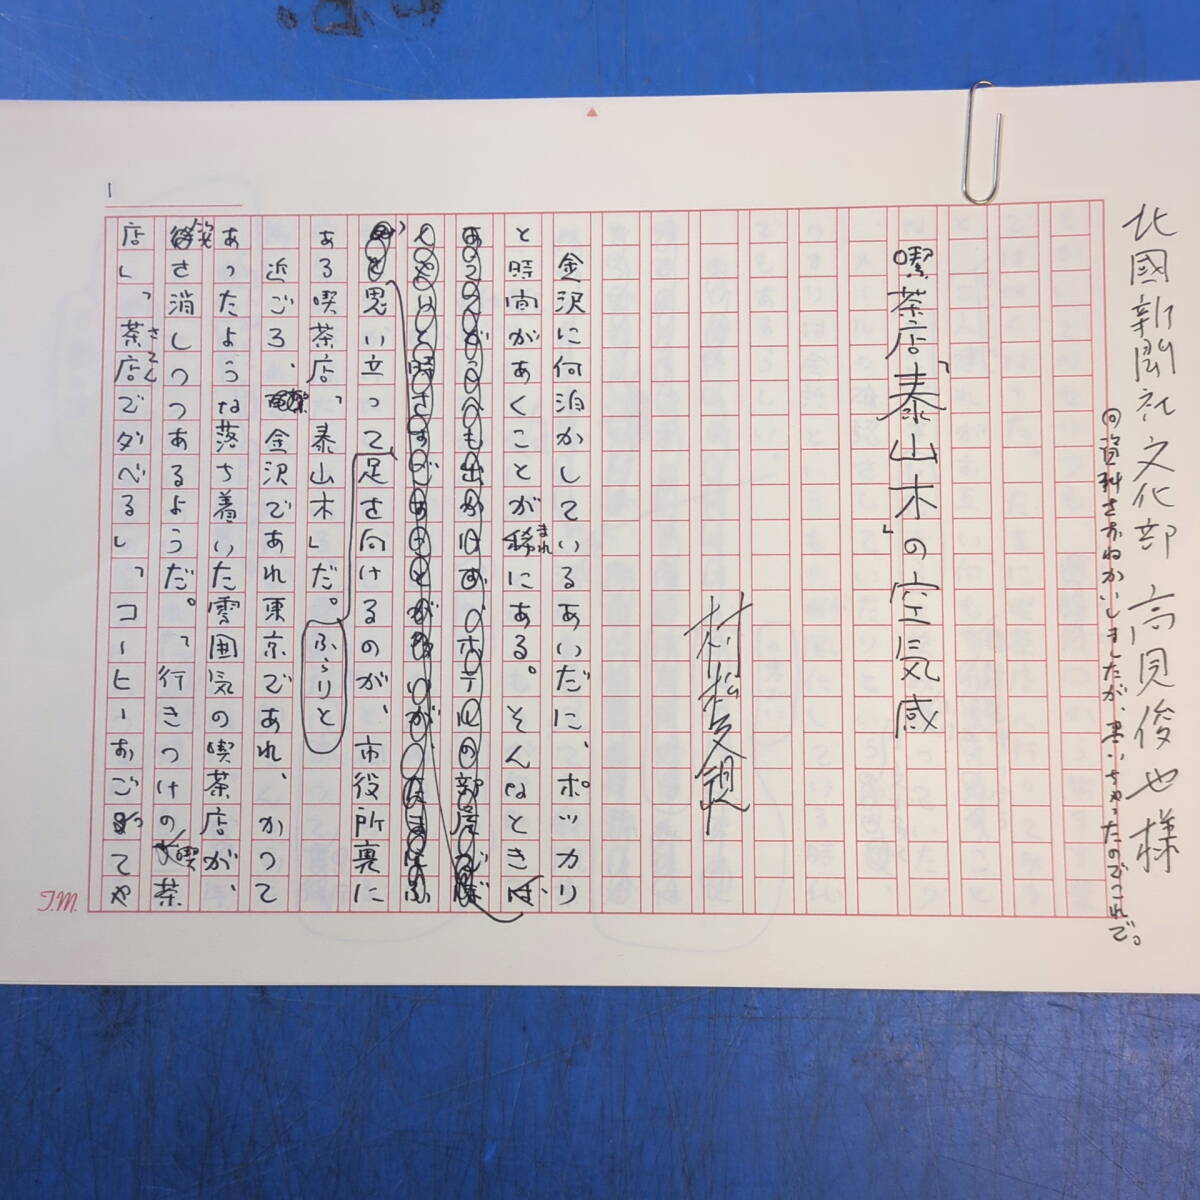 北國新聞社文化部 高見俊也様
資料をおねがいしましたが、書いちゃったのでこれで。
喫茶店「泰山木」の空気感
村松友視
金沢に何泊かしているあいだに、ポッカリ
と時間があくことが稀にある。そんなときは
まれ
思い立って足を向けるのが、市役所裏に
ある喫茶店「泰山木」だ。
ふらりと
近ごろ、金沢であれ東京であれ、かつて
あったような落ち着いた雰囲気の喫茶店が、
姿
さ消しつつあるようだ。「行きつけの喫茶
店」、「茶店でダベる」、「コーヒーおごってや
さてん
1
T.M.